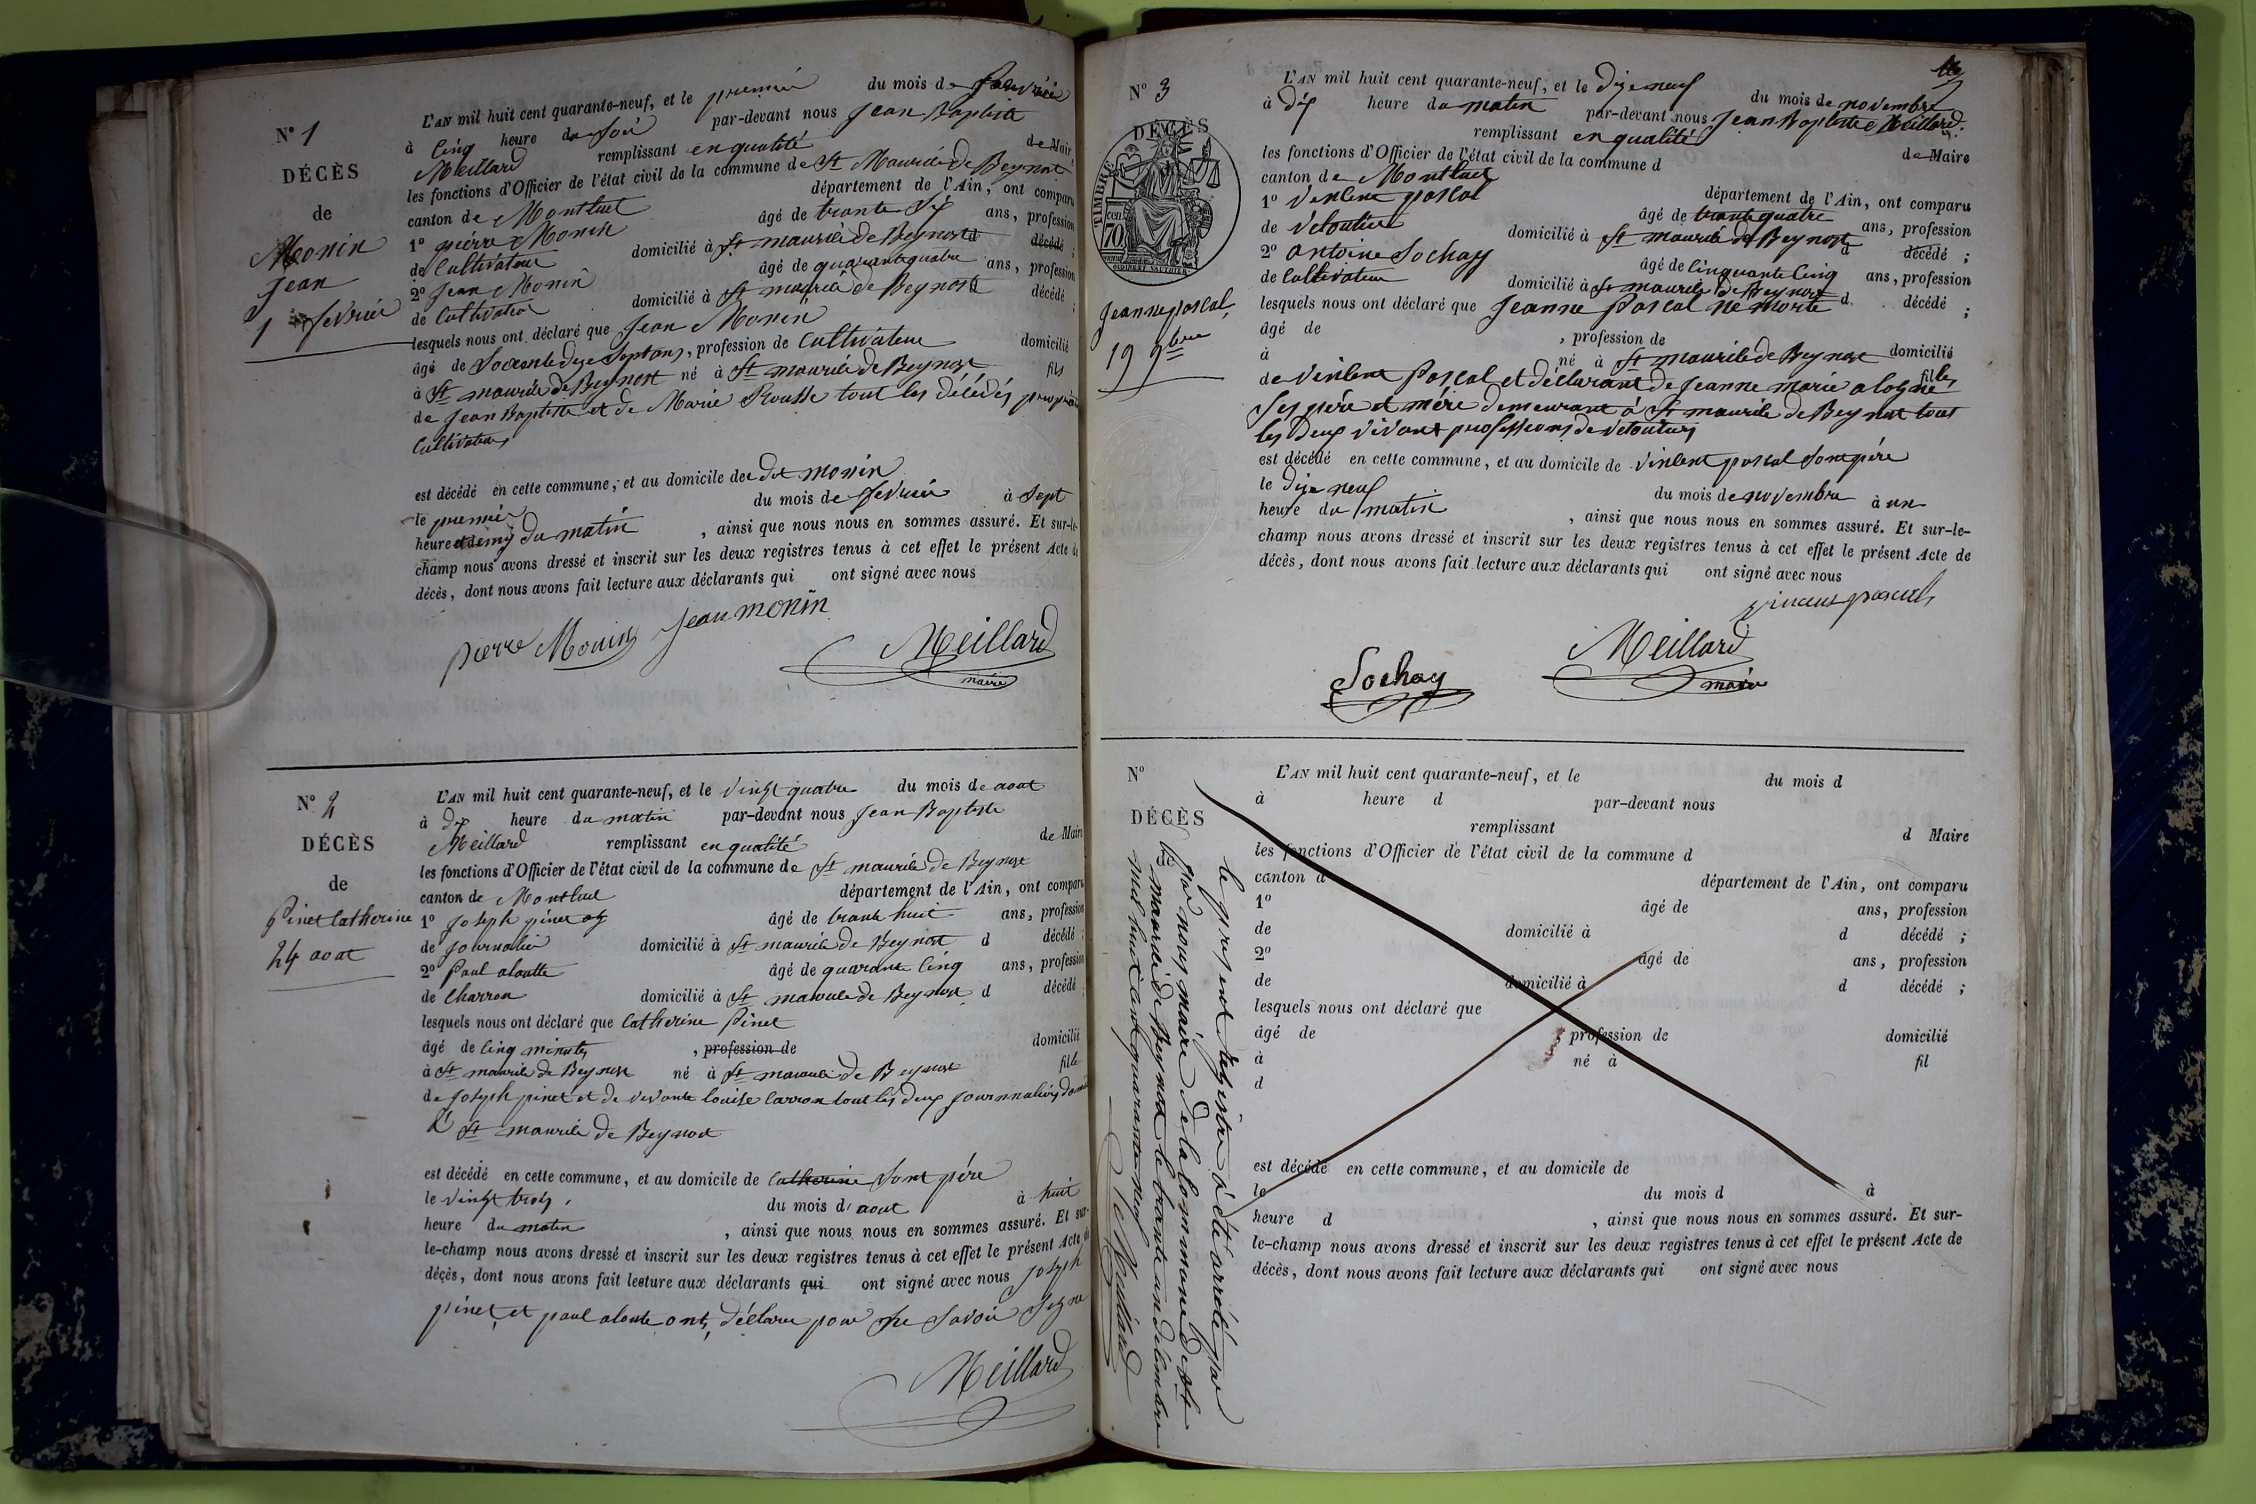 N° 1
DÉCÈS
de
Monin
Jean
1 fevrier
L'AN mil huit cent quarante-neuf, et le premier du mois de fevrier
à cinq heure du soir par-devant nous Jean Baptiste
Meillard remplissant en qualité de Maire
les fonctions d'Officier de l'état civil de la commune de St Maurice de Beynost
canton de Montluel département de l'Ain, ont comparu
1° pierre Monin âgé de trante six ans, profession
de Cultivateur domicilié à St maurice de Beynost d décédé ;
2° Jean Monin âgé de quarante quatre ans, profession
de Cultivateur domicilié à St maurice de Beynost d décédé ;
lesquels nous ont déclaré que Jean Monin
âgé de Soixante dize Sept ans, profession de Cultivateur domicilié
à St maurice de Beynost né à St maurice de Beynost fils
de Jean Baptiste et de Marie Rousse tout les décédés
Cultivateurs
est décédé en cette commune, et au domicile de dit monin
le premier du mois de fevrier à Sept
heure et demy du matin , ainsi que nous nous en sommes assuré. Et sur-le-
champ nous avons dressé et inscrit sur les deux registres tenus à cet effet le présent Acte de
décès, dont nous avons fait lecture aux déclarants qui ont signé avec nous
pierre Monin Jean monin
Meillard
maire
N° 2
DÉCÈS
de
Pinet Catherine
24 aoat
L'AN mil huit cent quarante-neuf, et le vingt quatre du mois de aoat
à dix heure du matin par-devant nous Jean Baptiste
Meillard remplissant en qualité de Maire
les fonctions d'Officier de l'état civil de la commune de St maurice de Beynost
canton de Montluel département de l'Ain, ont comparu
1° Joseph pinet âgé de trante huit ans, profession
de Journalier domicilié à St maurice de Beynost d décédé ;
2° Paul aloatte âgé de quarante cinq ans, profession
de Charron domicilié à St maurice de Beynost d décédé ;
lesquels nous ont déclaré que Catherine Pinet
âgé de cinq minutes , profession de domicilié
à St maurice de Beynost né à St maurice de Beynost fille
de Joseph pinet et de vivante louise Carron tout les deux Journnaliers
à St maurice de Beynost
est décédé en cette commune, et au domicile de Catherine Sont père
le vingt trois du mois d'aout à huit
heure du matin , ainsi que nous nous en sommes assuré. Et sur-
le-champ nous avons dressé et inscrit sur les deux registres tenus à cet effet le présent Acte de
décès, dont nous avons fait lecture aux déclarants qui ont signé avec nous Joseph
pinet et paul aloute ont déclaré pour ne Savoir Signe
Meillard
N° 3
DÉCÈS
TIMBRE
cen 70
Jeanne pascal
19 9bre
L'AN mil huit cent quarante-neuf, et le Dize neuf du mois de novembre
à Dix heure du matin par-devant nous Jean Baptiste Meillard
remplissant en qualité de Maire
les fonctions d'Officier de l'état civil de la commune d
canton de Montluel département de l'Ain, ont comparu
1° Vincent pascal âgé de trante quatre ans, profession
de Veloutier domicilié à St maurice de Beynost d décédé ;
2° antoine Sochay âgé de Cinquante Cinq ans, profession
de Cultivateur domicilié à St maurice de Beynost d décédé ;
lesquels nous ont déclaré que Jeanne Pascal né morte
âgé de , profession de domicilié
à né à St maurice de Beynost fille
de Vincent Pascal et déclarant de Jeanne marie
Ses père et mère demeurant à St maurice de Beynost tout
les Deux vivant professions de Veloutiers
est décédé en cette commune, et au domicile de Vincent pascal Sont père
le Dize neuf du mois de novembre à un
heure du matin , ainsi que nous nous en sommes assuré. Et sur-le-
champ nous avons dressé et inscrit sur les deux registres tenus à cet effet le présent Acte de
décès, dont nous avons fait lecture aux déclarants qui ont signé avec nous
vincent pascal
Sochay
Meillard
maire
N°
DÉCÈS
L'AN mil huit cent quarante-neuf, et le du mois d
à heure d par-devant nous
remplissant d Maire
les fonctions d'Officier de l'état civil de la commune d
canton d département de l'Ain, ont comparu
1° âgé de ans, profession
de domicilié à d décédé ;
2° âgé de ans, profession
de domicilié à d décédé ;
lesquels nous ont déclaré que
âgé de profession de domicilié
à né à fil
d
est décédé en cette commune, et au domicile de
le du mois d à
heure d , ainsi que nous nous en sommes assuré. Et sur-
le-champ nous avons dressé et inscrit sur les deux registres tenus à cet effet le présent Acte de
décès, dont nous avons fait lecture aux déclarants qui ont signé avec nous
le present registre à été arrêté par
par nous maire de la Commune de St
maurice de Beynost le trante un décembre
mil huit cent quarante-neuf
Meillard